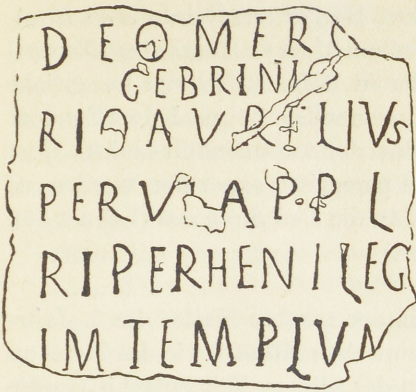 DEO MERC
GEBRINI
RIO AVRELIVS
PERVLA P·PL
RIPERHENILEG
IM TEMPLVM